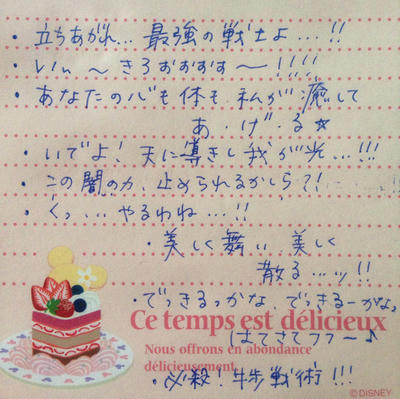 ・立ちあがれ… 最強の戦士よ…!!
・いぃ〜きろおすおす〜!!!!
・あなたの心も体も私が癒して
あ・げ・る☆
・いでよ! 天に導きし我が光…!!!
・この闇の力、止められるかしら?!
・くっ…やるわね…!!
・美しく舞い 美しく
散る…ッ!!
・でっきるっかな、でっきるーかな♪
Ce temps est délicieux
はてさてフフ〜♪
Nous offrons en abondance
délicieusement.
・必殺! 牛歩戦術!!!
©DISNEY